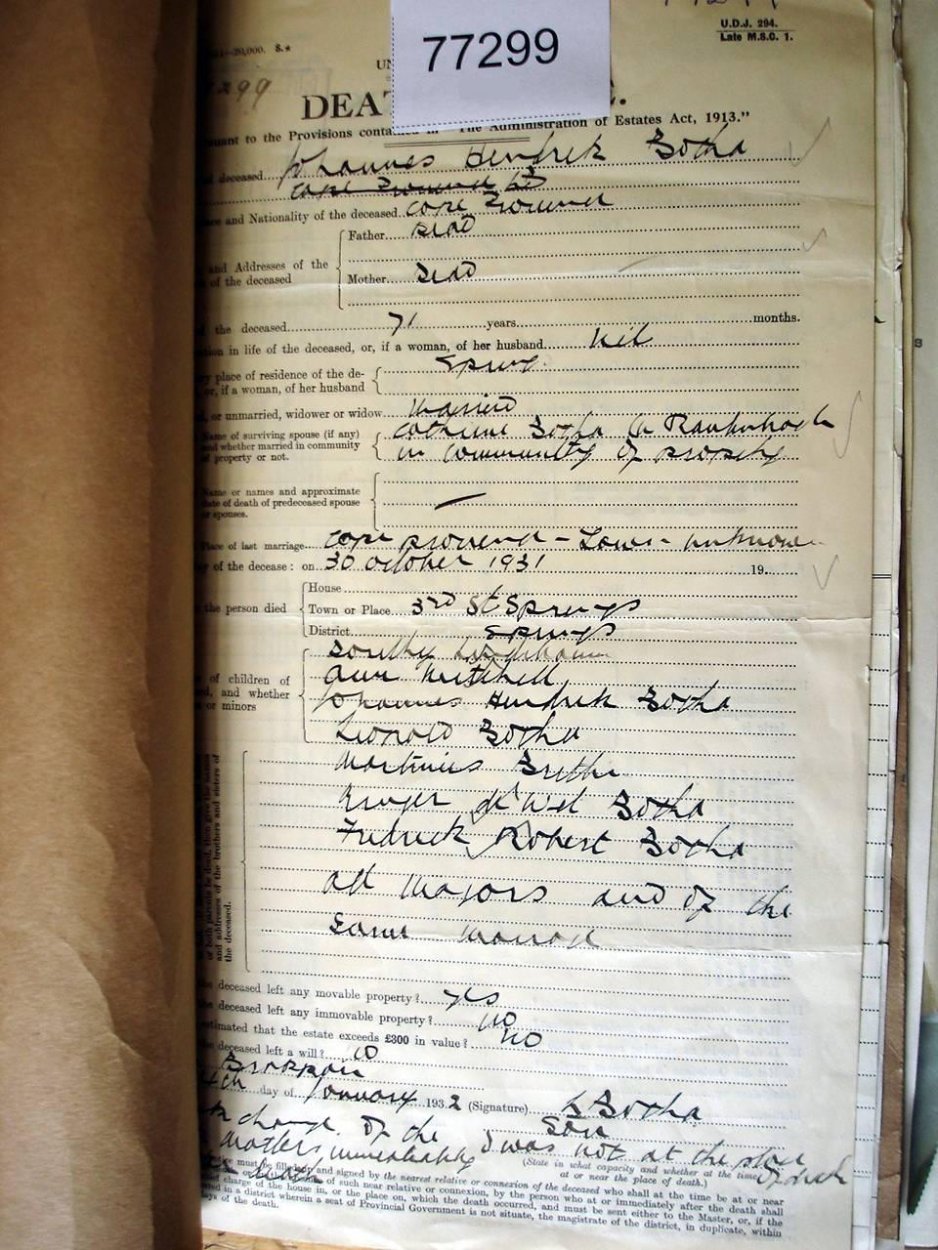 77299
U.D.J. 294.
Late M.S.C. 1.
20,000. S.
299
DEAT
to the Provisions contained in "The Administration of Estates Act, 1913."
deceased Johannes Hendrik Botha
and Nationality of the deceased Cape
Father Dead
and Addresses of the
of the deceased
Mother Dead
the deceased 71 years months.
in life of the deceased, or, if a woman, of her husband Nil
place of residence of the de-
or, if a woman, of her husband
Springs
or unmarried, widower or widow Married
Name of surviving spouse (if any)
and whether married in community
of property or not.
Botha
in community of property
Name or names and approximate
date of death of predeceased spouse
or spouses.
Place of last marriage Cape
of the decease: on 30 October 1931 19
House
the person died
Town or Place 3rd St Springs
District Springs
of children of
and whether
or minors
Ann Mitchell
Johannes Hendrik Botha
Leopold Botha
Martinus
de Wet Botha
Fredrick Robert Botha
all majors and of the
same
of both parents be dead, then give the names
and addresses of the brothers and sisters of
the deceased.
deceased left any movable property? yes
deceased left any immovable property? no
estimated that the estate exceeds £300 in value? No
deceased left a will?
Brakpan
day of January 1932 (Signature) Botha
Son
charge of the
I was not at the place
immediately
of death
(State in what capacity and whether at the time
at or near the place of death.)
must be filled up and signed by the nearest relative or connexion of the deceased who shall at the time be at or near
of such near relative or connexion, by the person who at or immediately after the death shall
charge of the house in, or the place on, which the death occurred, and must be sent either to the Master, or, if the
in a district wherein a seat of Provincial Government is not situate, the magistrate of the district, in duplicate, within
days of the death.